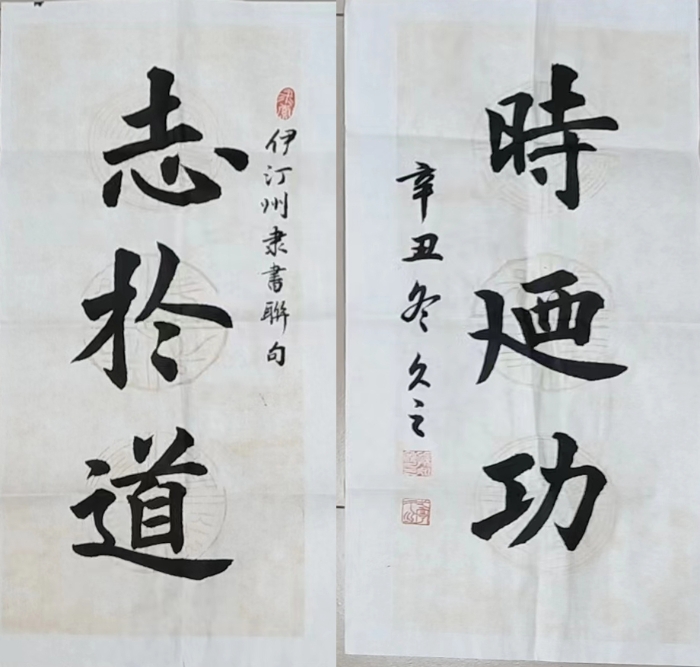 志扵道
伊汀州隶書聯句
時廼功
辛丑冬久之